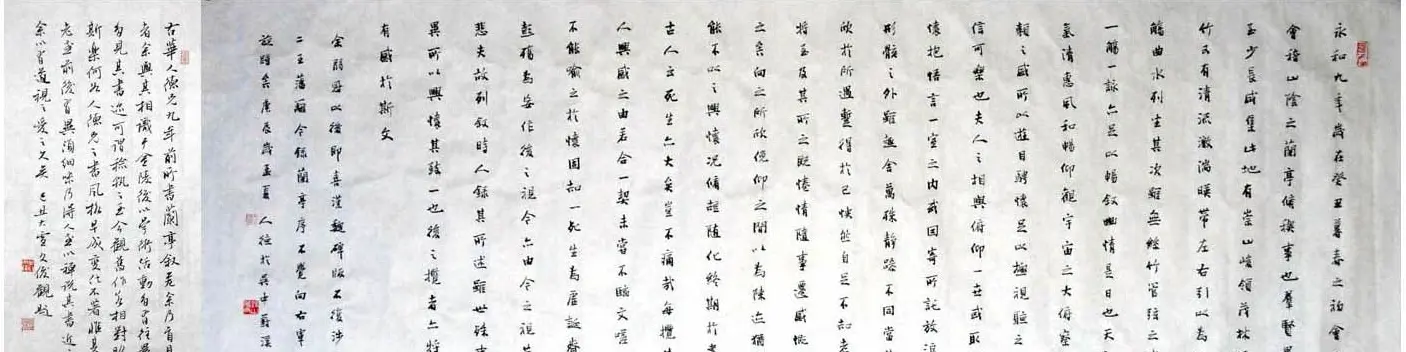 永和九年歲在癸丑暮春之初會
會稽山陰之蘭亭脩稧事也羣賢
至少長咸集此地有崇山峻領茂林
竹又有清流激湍暎帶左右引以為
觴曲水列坐其次雖無絲竹管弦之
一觴一詠亦足以暢敘幽情是日也天
氣清惠風和暢仰觀宇宙之大俯察
類之盛所以遊目騁懷足以極視聽之
信可樂也夫人之相與俯仰一世或取
懷抱悟言一室之內或因寄所託放浪
形骸之外雖趣舍萬殊靜躁不同當
欣於所遇暫得於己快然自足不知老
將至及其所之既惓情隨事遷感慨
之矣向之所欣俛仰之間以為陳迹猶
能不以之興懷況脩短隨化終期於
古人云死生亦大矣豈不痛哉每攬
人興感之由若合一契未嘗不臨文嗟
不能喻之於懷固知一死生為虛誕齊
彭殤為妄作後之視今亦由今之視
悲夫故列敘時人錄其所述雖世殊
異所以興懷其致一也後之攬者亦將
有感於斯文
余弱冠以後即喜漢魏碑版不復涉
二王藩籬今錄蘭亭序不覺向右軍
旋踵矣庚辰歲孟夏 人 於吳中爵溪
古華人 九年前所書蘭亭敘
者余與其相識於金陵後以學術活動
為見其書迹可謂 今觀舊作
斯樂何如人 之書風
老 前後 異須細味乃 其書近
余以 視之 久矣 己丑大雪 久俊觀題